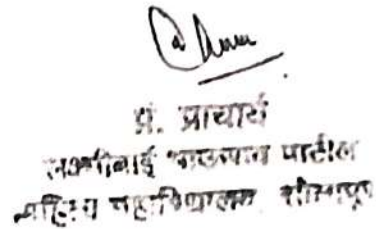 प्र. प्राचार्य
लक्ष्मीबाई भाऊराव पाटील
महिला महाविद्यालय सोलापूर